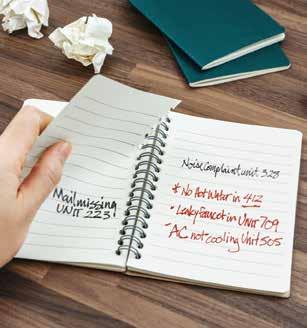 Mail missing
UNIT 223
Noise Complaint unit 328
* No Hot Water in 412
• Leaky Faucet in Unit 709
• AC not cooling Unit 505